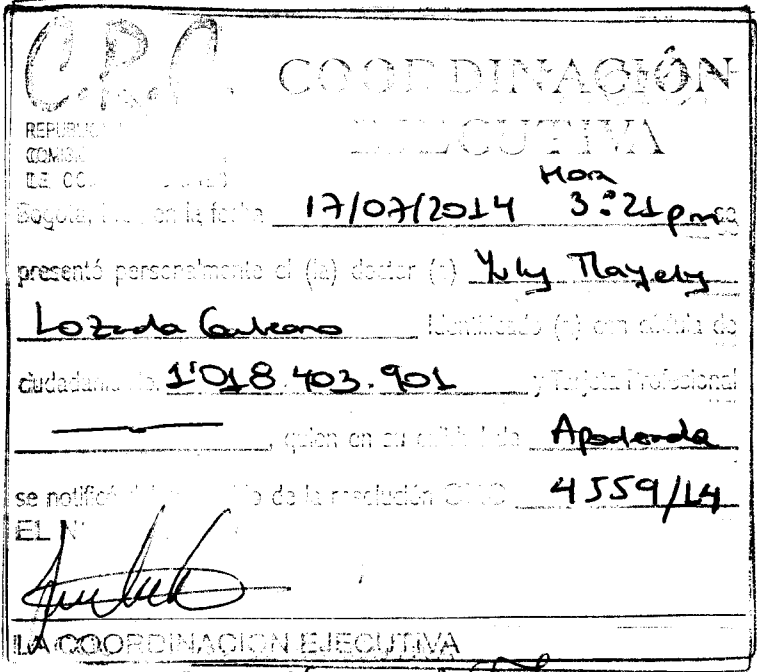 C.R.C. COORDINACIÓN
EJECUTIVA
Hora
Bogotá, en la fecha 17/07/2014 3:21 pm se
presentó personalmente el (la) doctor (a) Yuly Mayely
Lozada identificado (a) con cédula de
ciudadanía No. 1'018.403.901 y Tarjeta Profesional
, quien en su calidad de Apoderada
se notificó de la resolución 4559/14
EL
LA COORDINACION EJECUTIVA